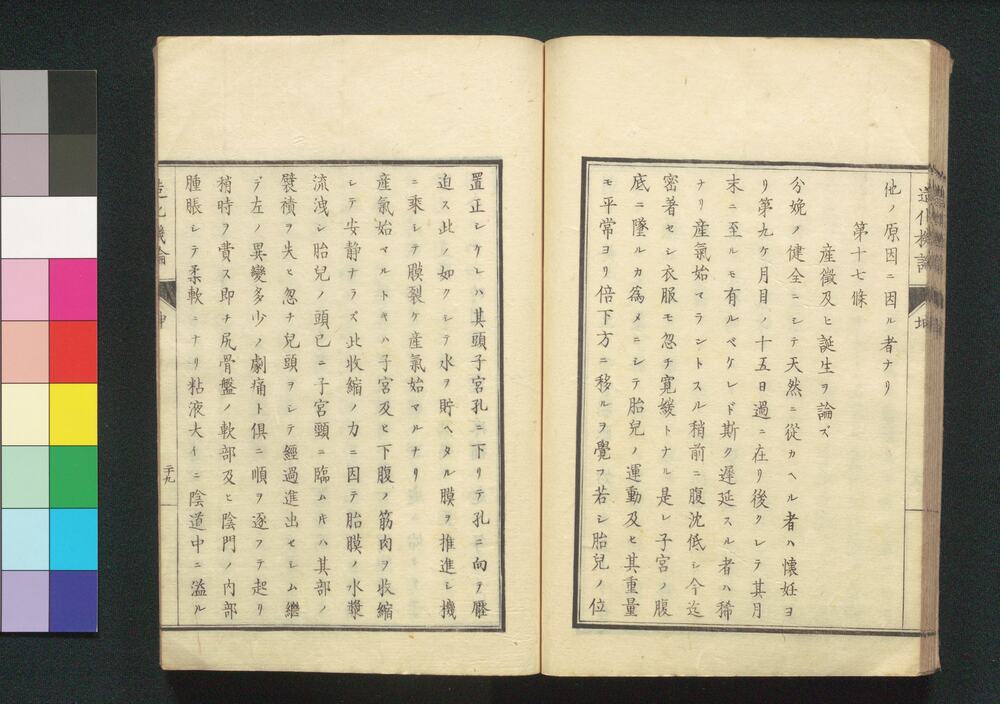 他ノ原因ニ因ル者ナリ
第十七條
産徵及ヒ誕生ヲ論ズ
分娩ノ健全ニシテ天然ニ從カヘル者ハ懷妊ヨ
リ第九ケ月目ノ十五日過ニ在リ後クレテ其月
末ニ至ルモ有ルベケレド斯ク遲延スル者ハ稀
ナリ産氣始マラントスル稍前ニ腹沈低シ今迄
密著セシ衣服モ忽チ寬緩トナル是レ子宮ノ腹
底ニ墜ルカ爲メニシテ胎兒ノ運動及ヒ其重量
モ平常ヨリ倍下方ニ移ルヲ覺フ若シ胎兒ノ位
置正シケレハ其頭子宮孔ニ下リテ孔ニ向テ壓
迫ス此ノ如クシテ水ヲ貯ヘタル膜ヲ推進シ機
ニ乘シテ膜裂ケ産氣始マルナリ
産氣始マルトキハ子宮及ヒ下腹ノ筋肉ヲ收縮
シテ安静ナラズ此收縮ノ力ニ因テ胎膜ノ水漿
流洩シ胎兒ノ頭已ニ子宮頸ニ臨ムキハ其部ノ
襞積ヲ失ヒ忽チ兒頭ヲシテ經過進出セシム繼
デ左ノ異變多少ノ劇痛ト俱ニ順ヲ逐フテ起リ
稍時ヲ費ス即チ尻骨盤ノ軟部及ヒ陰門ノ內部
腫脹シテ柔軟ニナリ粘液大イニ陰道中ニ溢ル
造化機論
坤
二十九